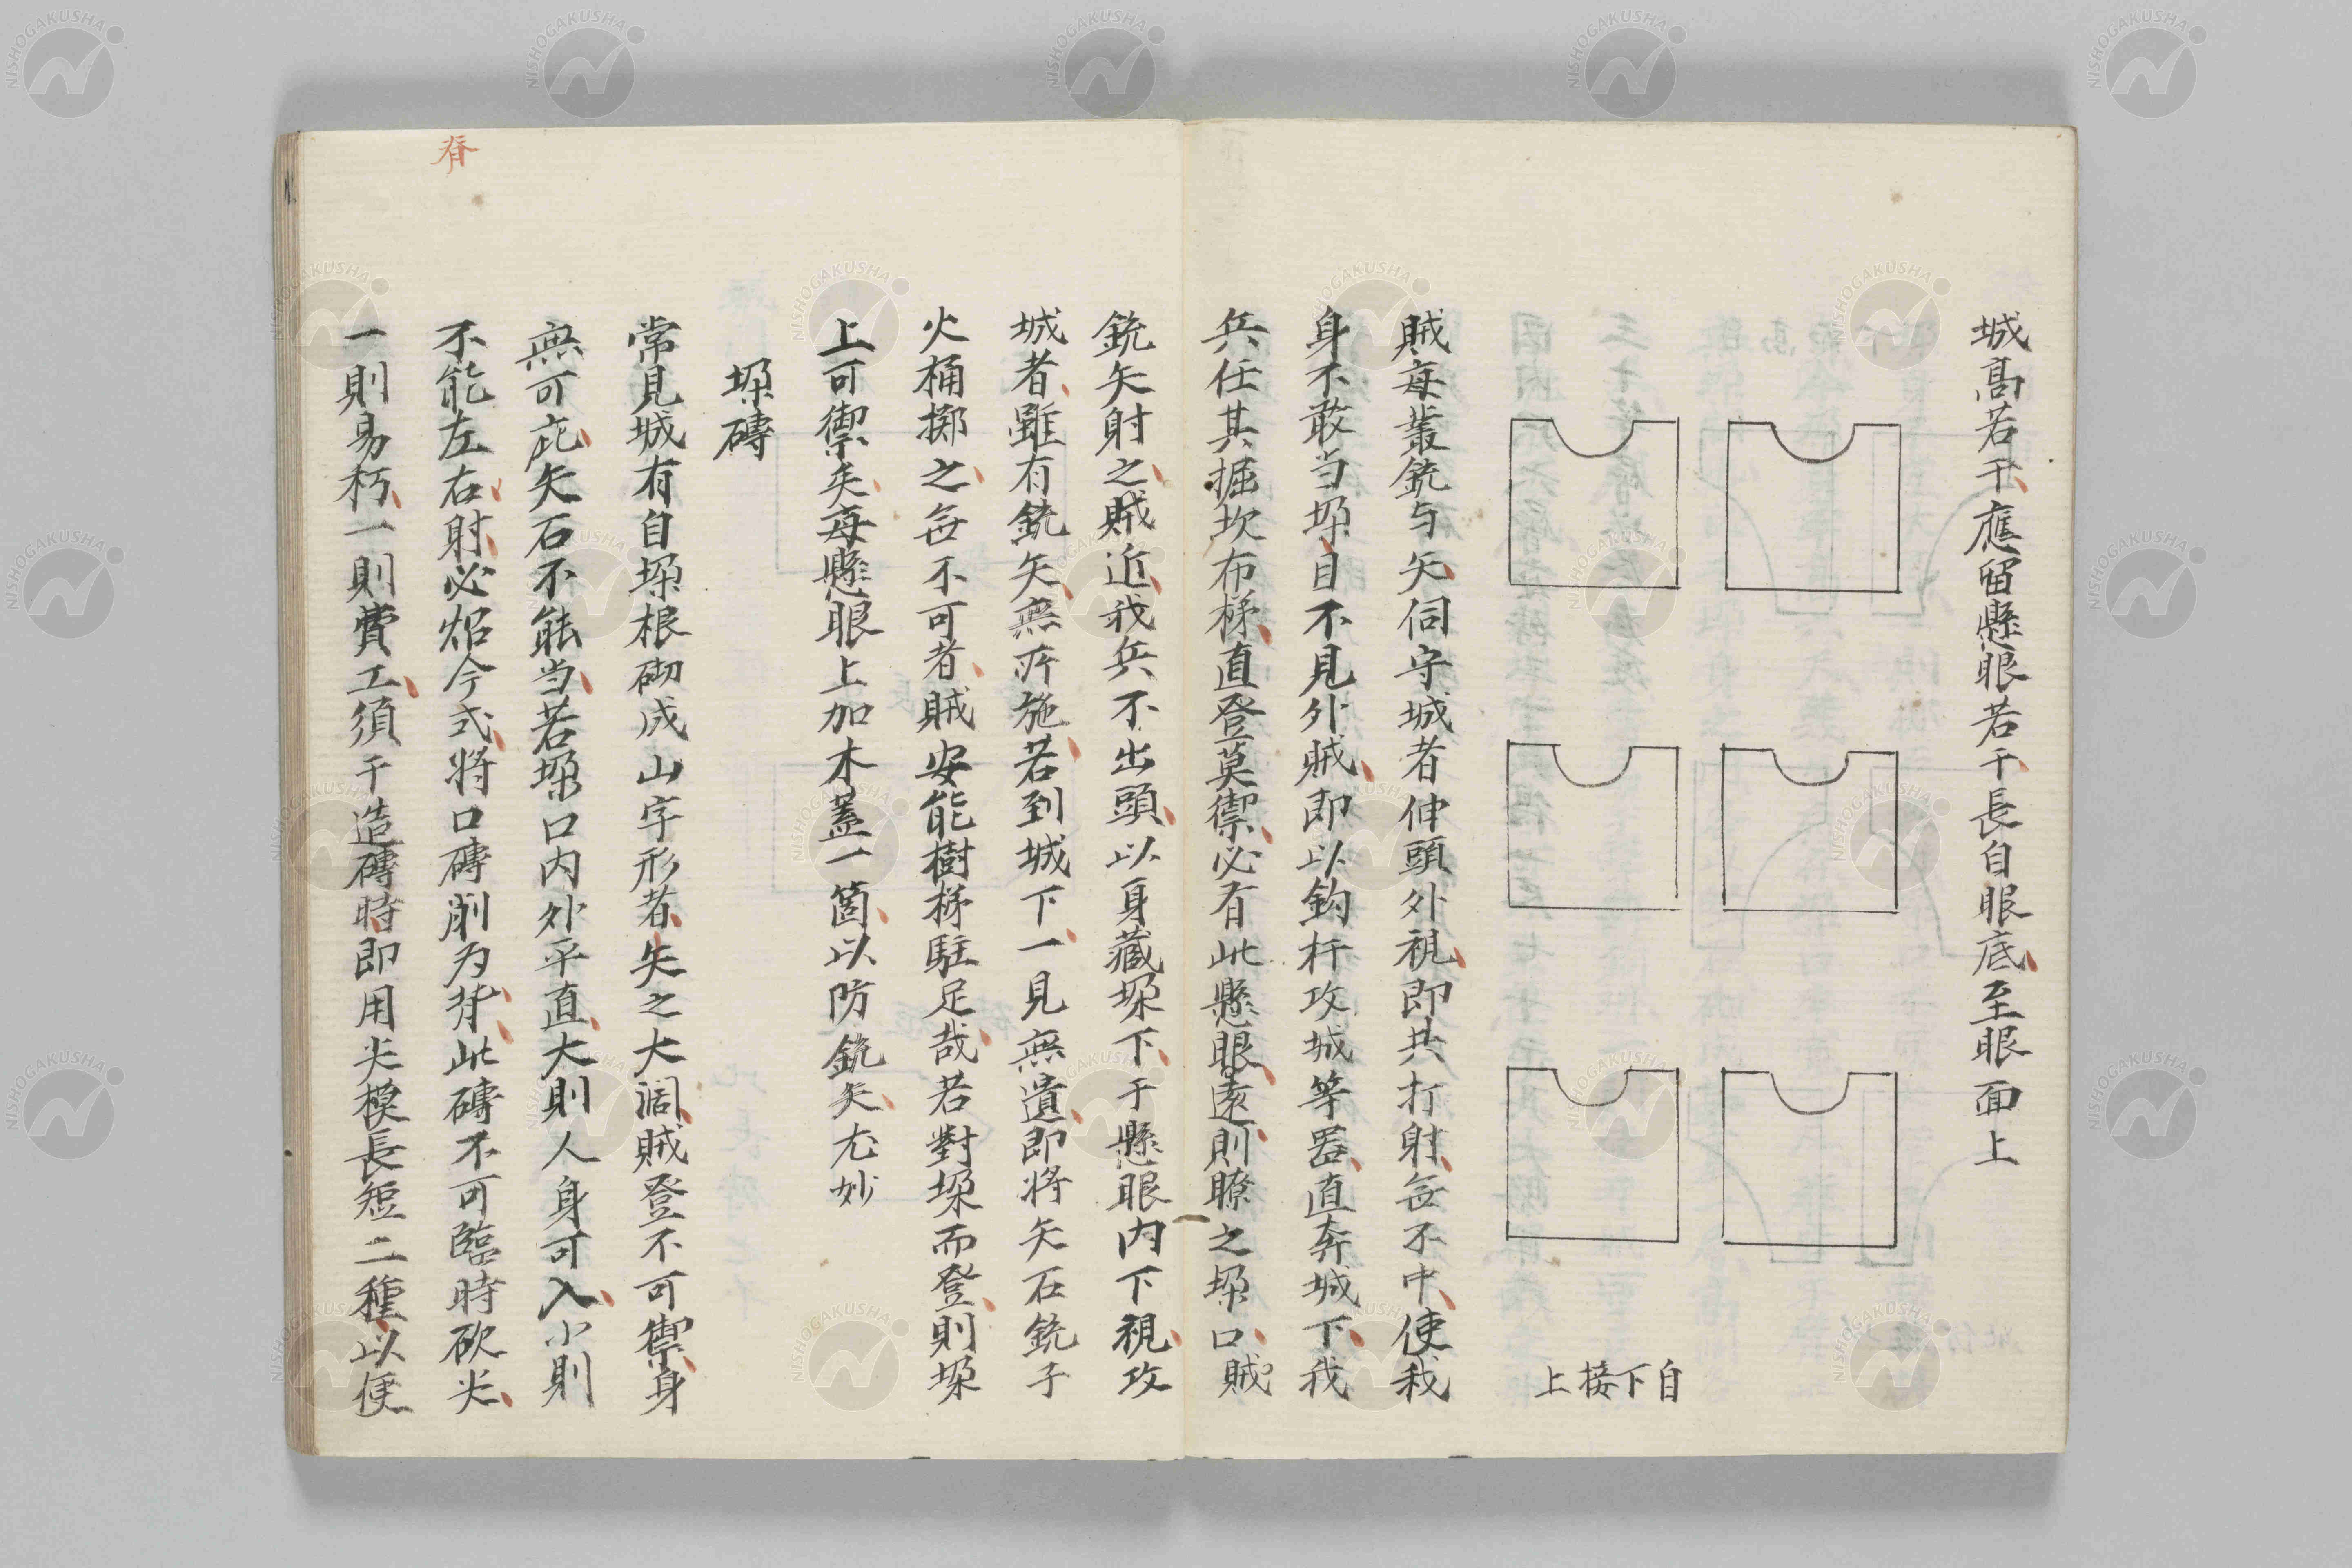 城髙若干應留懸眼若干長自眼底至眼面上
自下接上
賊每叢銃与矢伺守城者伸頭外視即共打射無不中使我
身不敢当垜目不見外賊即以鈎杆攻城等器直奔城下我
兵任其掘坎布梯直登莫禦必有此懸眼遠則瞭之垜口賊
銃矢射之賊近我兵不出頭以身藏垜下于懸眼内下視攻
城者雖有銃矢無所施若到城下一見無遺即将矢石銃子
火桶擲之無不可者賊安能樹梯駐足哉若對垜而登則垜
上可禦矣每懸眼上加木蓋一箇以防銃矢尤妙
垜磚
常見城有自垜根砌成山字形者失之大濶賊登不可禦身
無可庇矢石不能当若垜口内外平直大則人身可入小則
不能左右射必炤今式将口磚削为脊此磚不可臨時砍尖
一則易朽一則費工須干造磚時即用尖模長短二種以便
脊
NISHOGAKUSHA